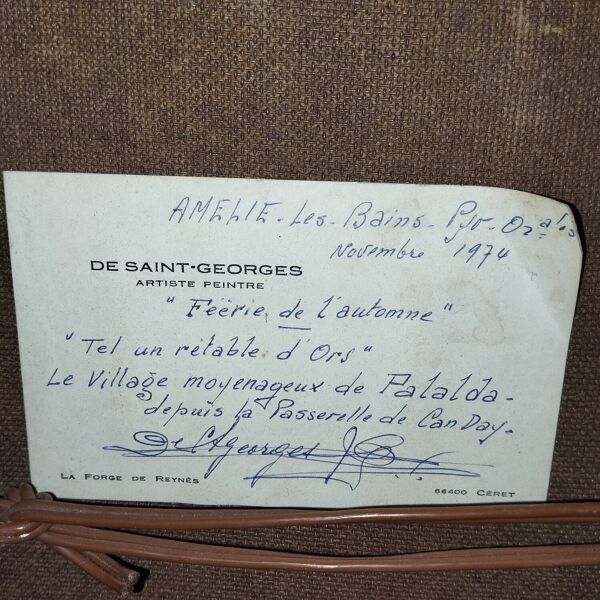 AMELIE-Les-Bains-Pyr-Orales
Novembre 1974
DE SAINT-GEORGES
ARTISTE PEINTRE
"Féérie de l'automne"
"Tel un rétable d'Ors"
Le Village moyenageux de Palalda-
depuis la Passerelle de Can Day-
De StGeorges
LA FORGE DE REYNÈS
66400 CÉRET